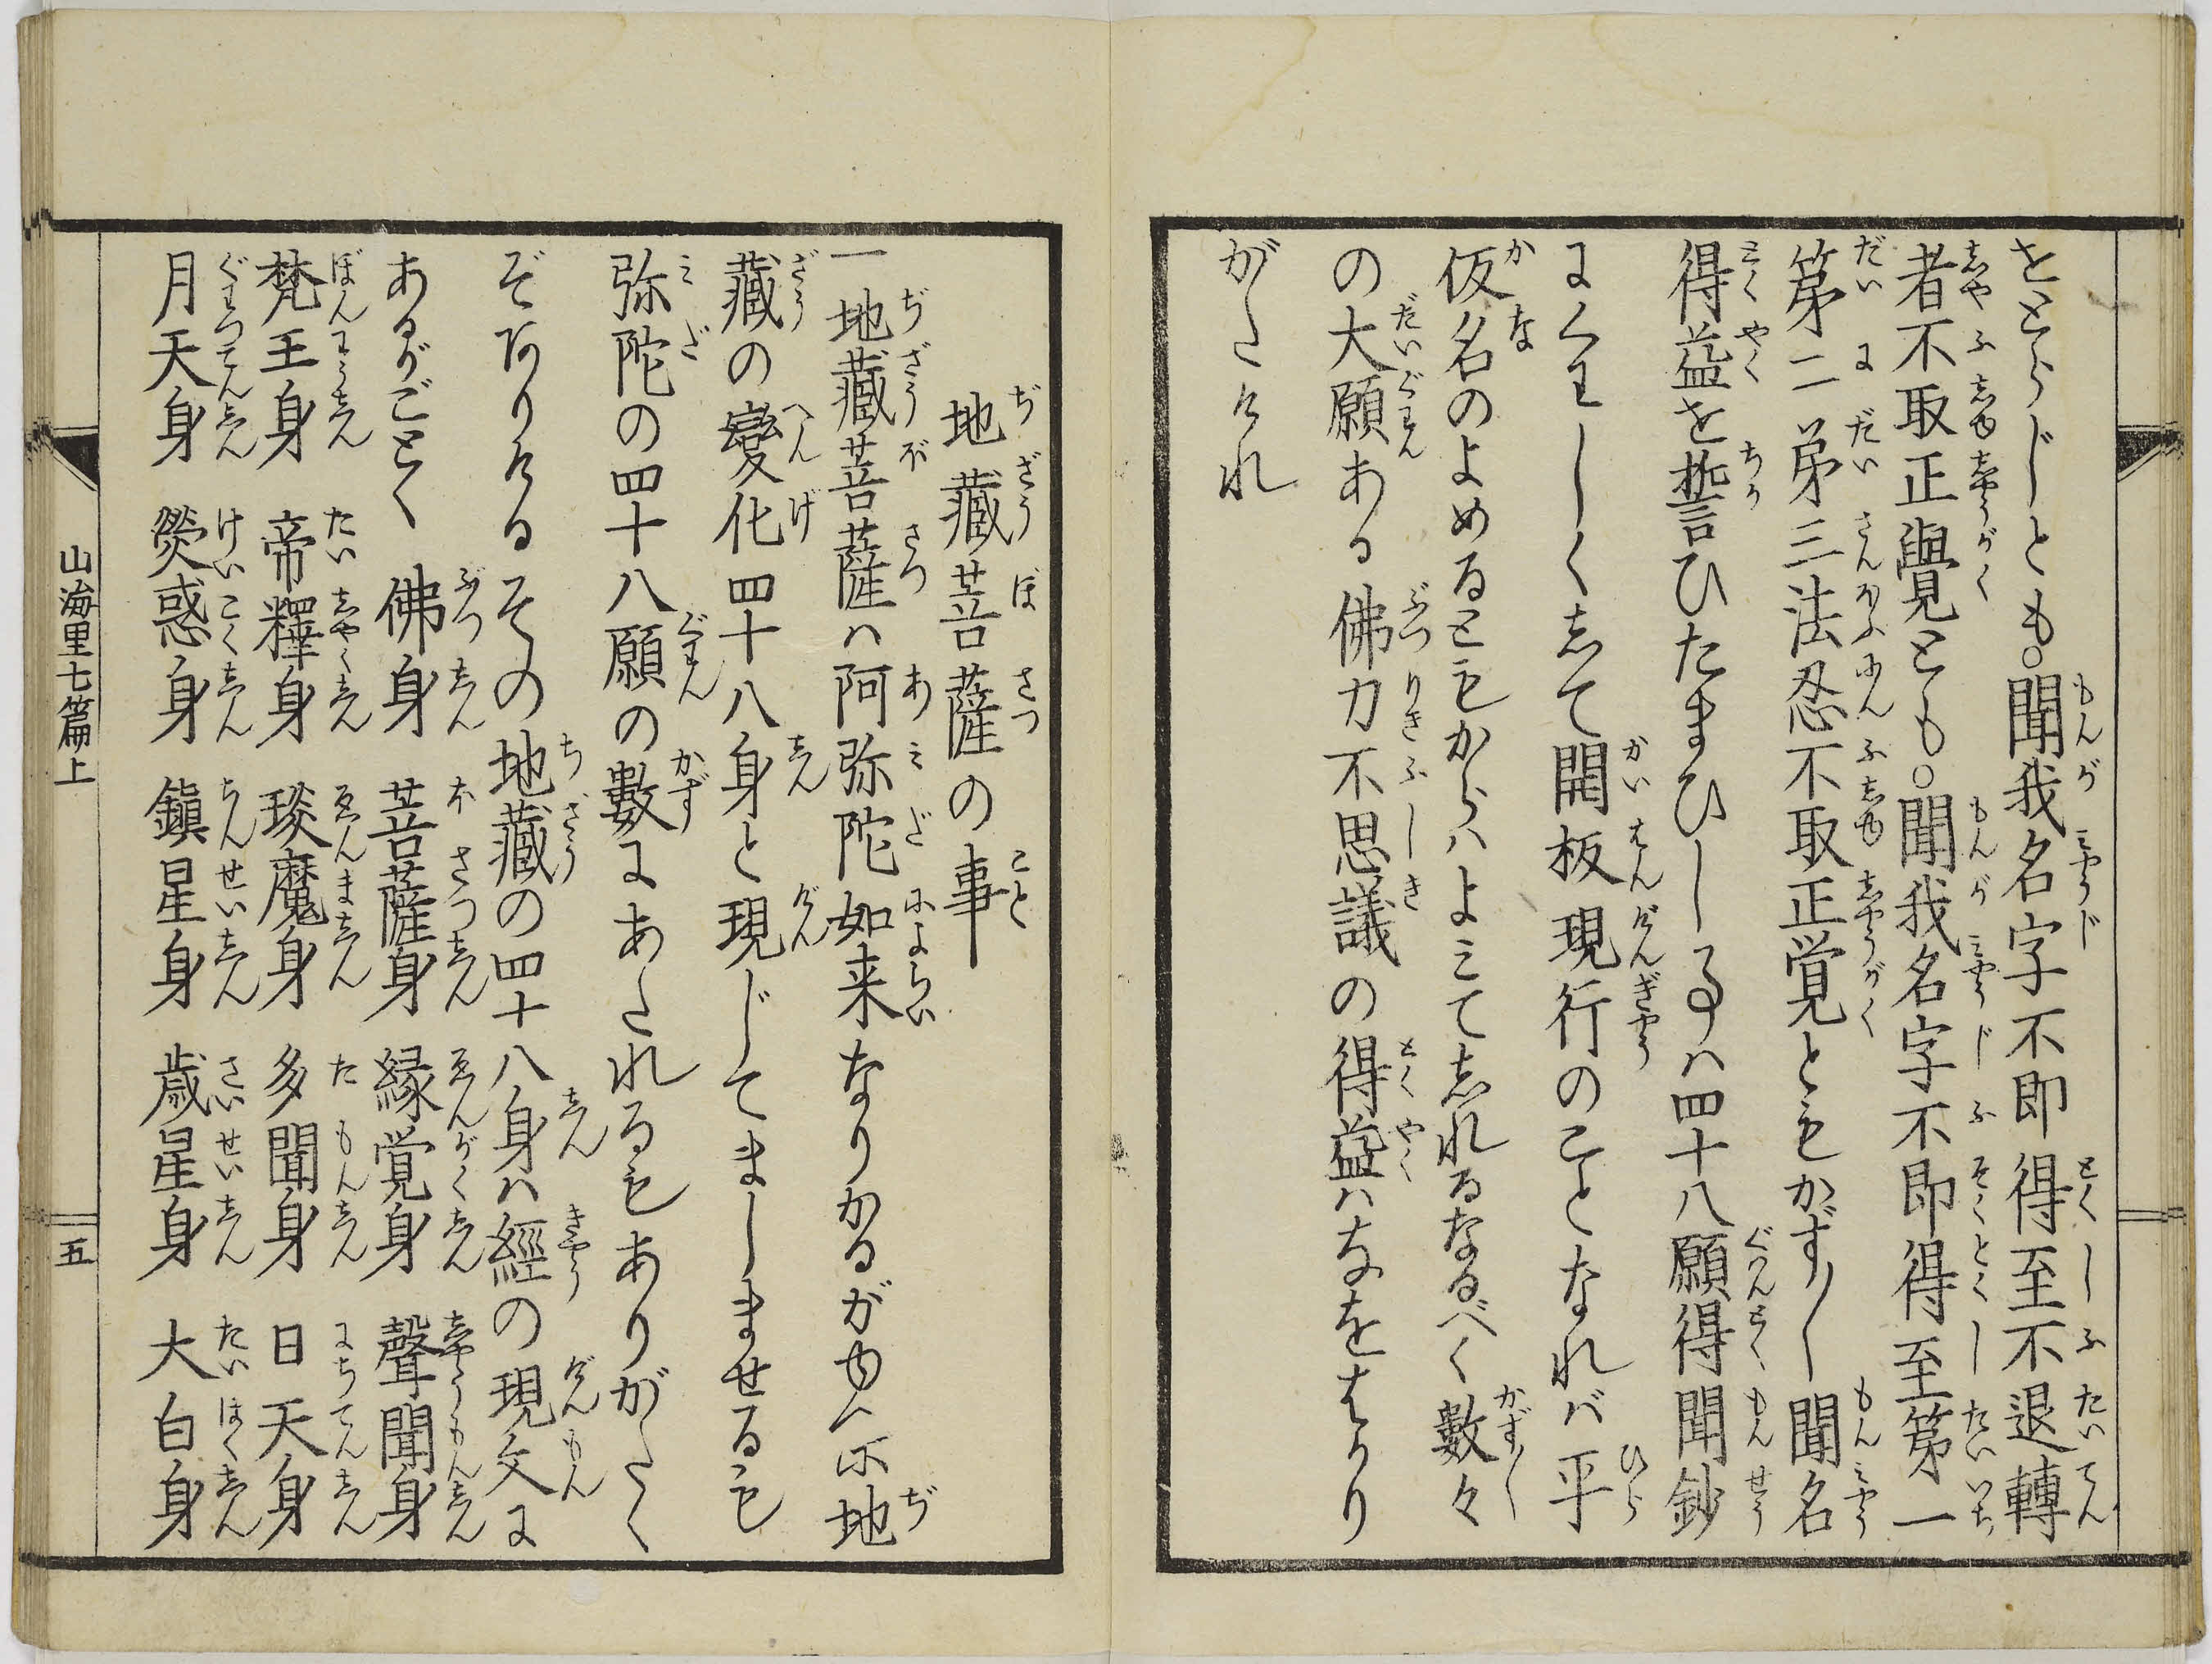 をとらじとも。聞我名字不即得至不退轉
者不取正覺とも。聞我名字不即得至第一
第二第三法忍不取正覚ともかず〳〵聞名
得益を誓ひたまひし事ハ四十八願得聞鈔
にくわしくあて開板現行のことなれバ平
仮名のよめるともからハよみて志れるなるべく數々
の大願ある佛力不思議の得益ハなをはかり
がたけれ
地藏菩薩の事
一地藏菩薩ハ阿弥陀如来なりかるがゆへに地
藏の變化四十八身と現じてましませるも
弥陀の四十八願の數にあたれるもありがたく
ぞおりけるその地藏の四十八身ハ經の現文に
あるがごとく 佛身 菩薩身 縁覚身 聲聞身
梵王身 帝釋身 琰魔身 多聞身 日天身
月天身 熒惑身 鎭星身 歳星身 大白身
山海里七篇上
五